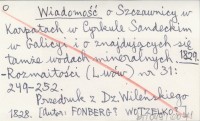 Wiadomość o Szczawnicy w
Karpatach w Cyrkule Sandeckim
w Galicyi, i o znajdujących się
tamże wodach mineralnych. 1829
- Rozmaitości (Lwów) nr 31:
249-252.
Przedruk z Dz. Wileńskiego
1828. [Autor: FONBERG? WOTZELKO?]